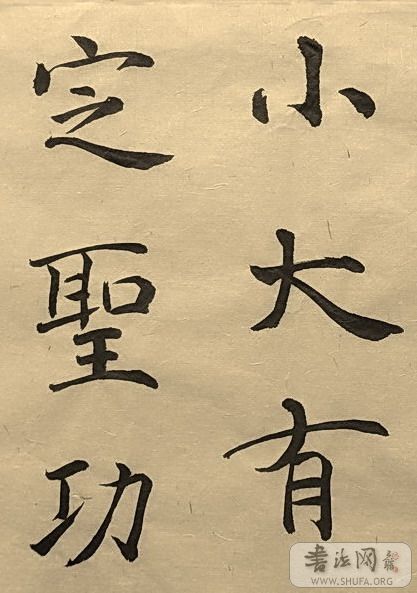 小大有
定聖功
書法网
WWW.SHUFA.ORG